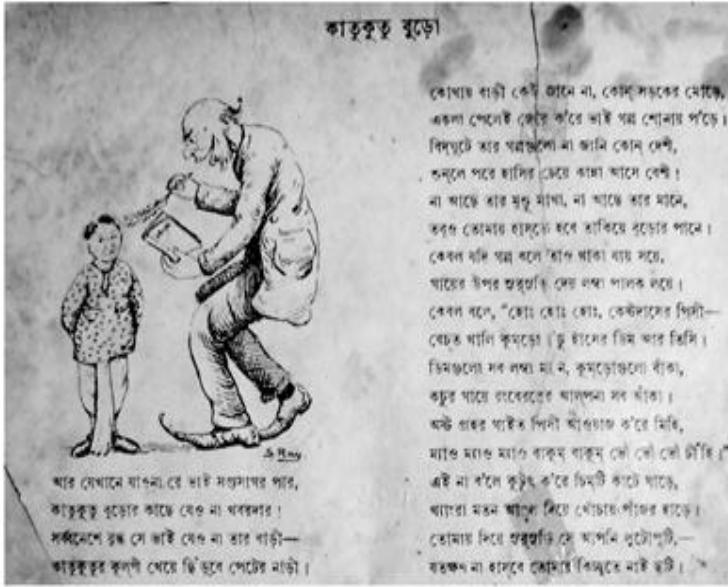 কাতুকুতু বুড়ো
আর যেখানে যাওনা রে ভাই সপ্তসাগর পার,
কাতুকুতু বুড়োর কাছে যেও না খবরদার!
সর্ব্বনেশে বৃদ্ধ সে ভাই যেও না তার বাড়ী—
কাতুকুতুর কুল্‌পী খেয়ে ছিঁড়বে পেটের নাড়ী।
কোথায় বাড়ী কেউ জানে না, কোন্‌ সড়কের মোড়ে,
একলা পেলেই জোর ক'রে ভাই গল্প শোনায় প'ড়ে।
বিদ্‌ঘুটে তার গল্পগুলো না জানি কোন্‌ দেশী,
শুন্‌লে পরে হাসির চেয়ে কান্না আসে বেশী!
না আছে তার মুণ্ডু মাথা, না আছে তার মানে,
তবুও তোমায় হাস্‌তে হবে তাকিয়ে বুড়োর পানে।
কেবল যদি গল্প বলে তাও থাকা যায় সয়ে,
গায়ের উপর শুড়্‌শুড়ি দেয় লম্বা পালক লয়ে।
কেবল বলে, "হোঃ হোঃ হোঃ, কেষ্টদাসের পিসী—
বেচ্‌ত খালি কুমড়ো কচু হাঁসের ডিম আর তিসি।
ডিমগুলো সব লম্বা মতন, কুমড়োগুলো বাঁকা,
কচুর গায়ে রংবেরঙের আল্‌পনা সব আঁকা।
অষ্ট প্রহর গাইত পিসী আওয়াজ ক'রে মিহি,
ম্যাও ম্যাও ম্যাও বাকুম্‌ বাকুম্‌ ভৌ ভৌ ভৌ চীঁহি।"
এই না ব'লে কুটুৎ ক'রে চিম্‌টি কাটে ঘাড়ে,
খ্যাংরা মতন আঙুল দিয়ে খোঁচায় পাঁজর হাড়ে।
তোমায় দিয়ে শুড়্‌শুড়ি সে আপনি লুটোপুটি,—
যতক্ষণ না হাসবে তোমায় কিচ্ছুতে নাই ছুটি।
S Ray